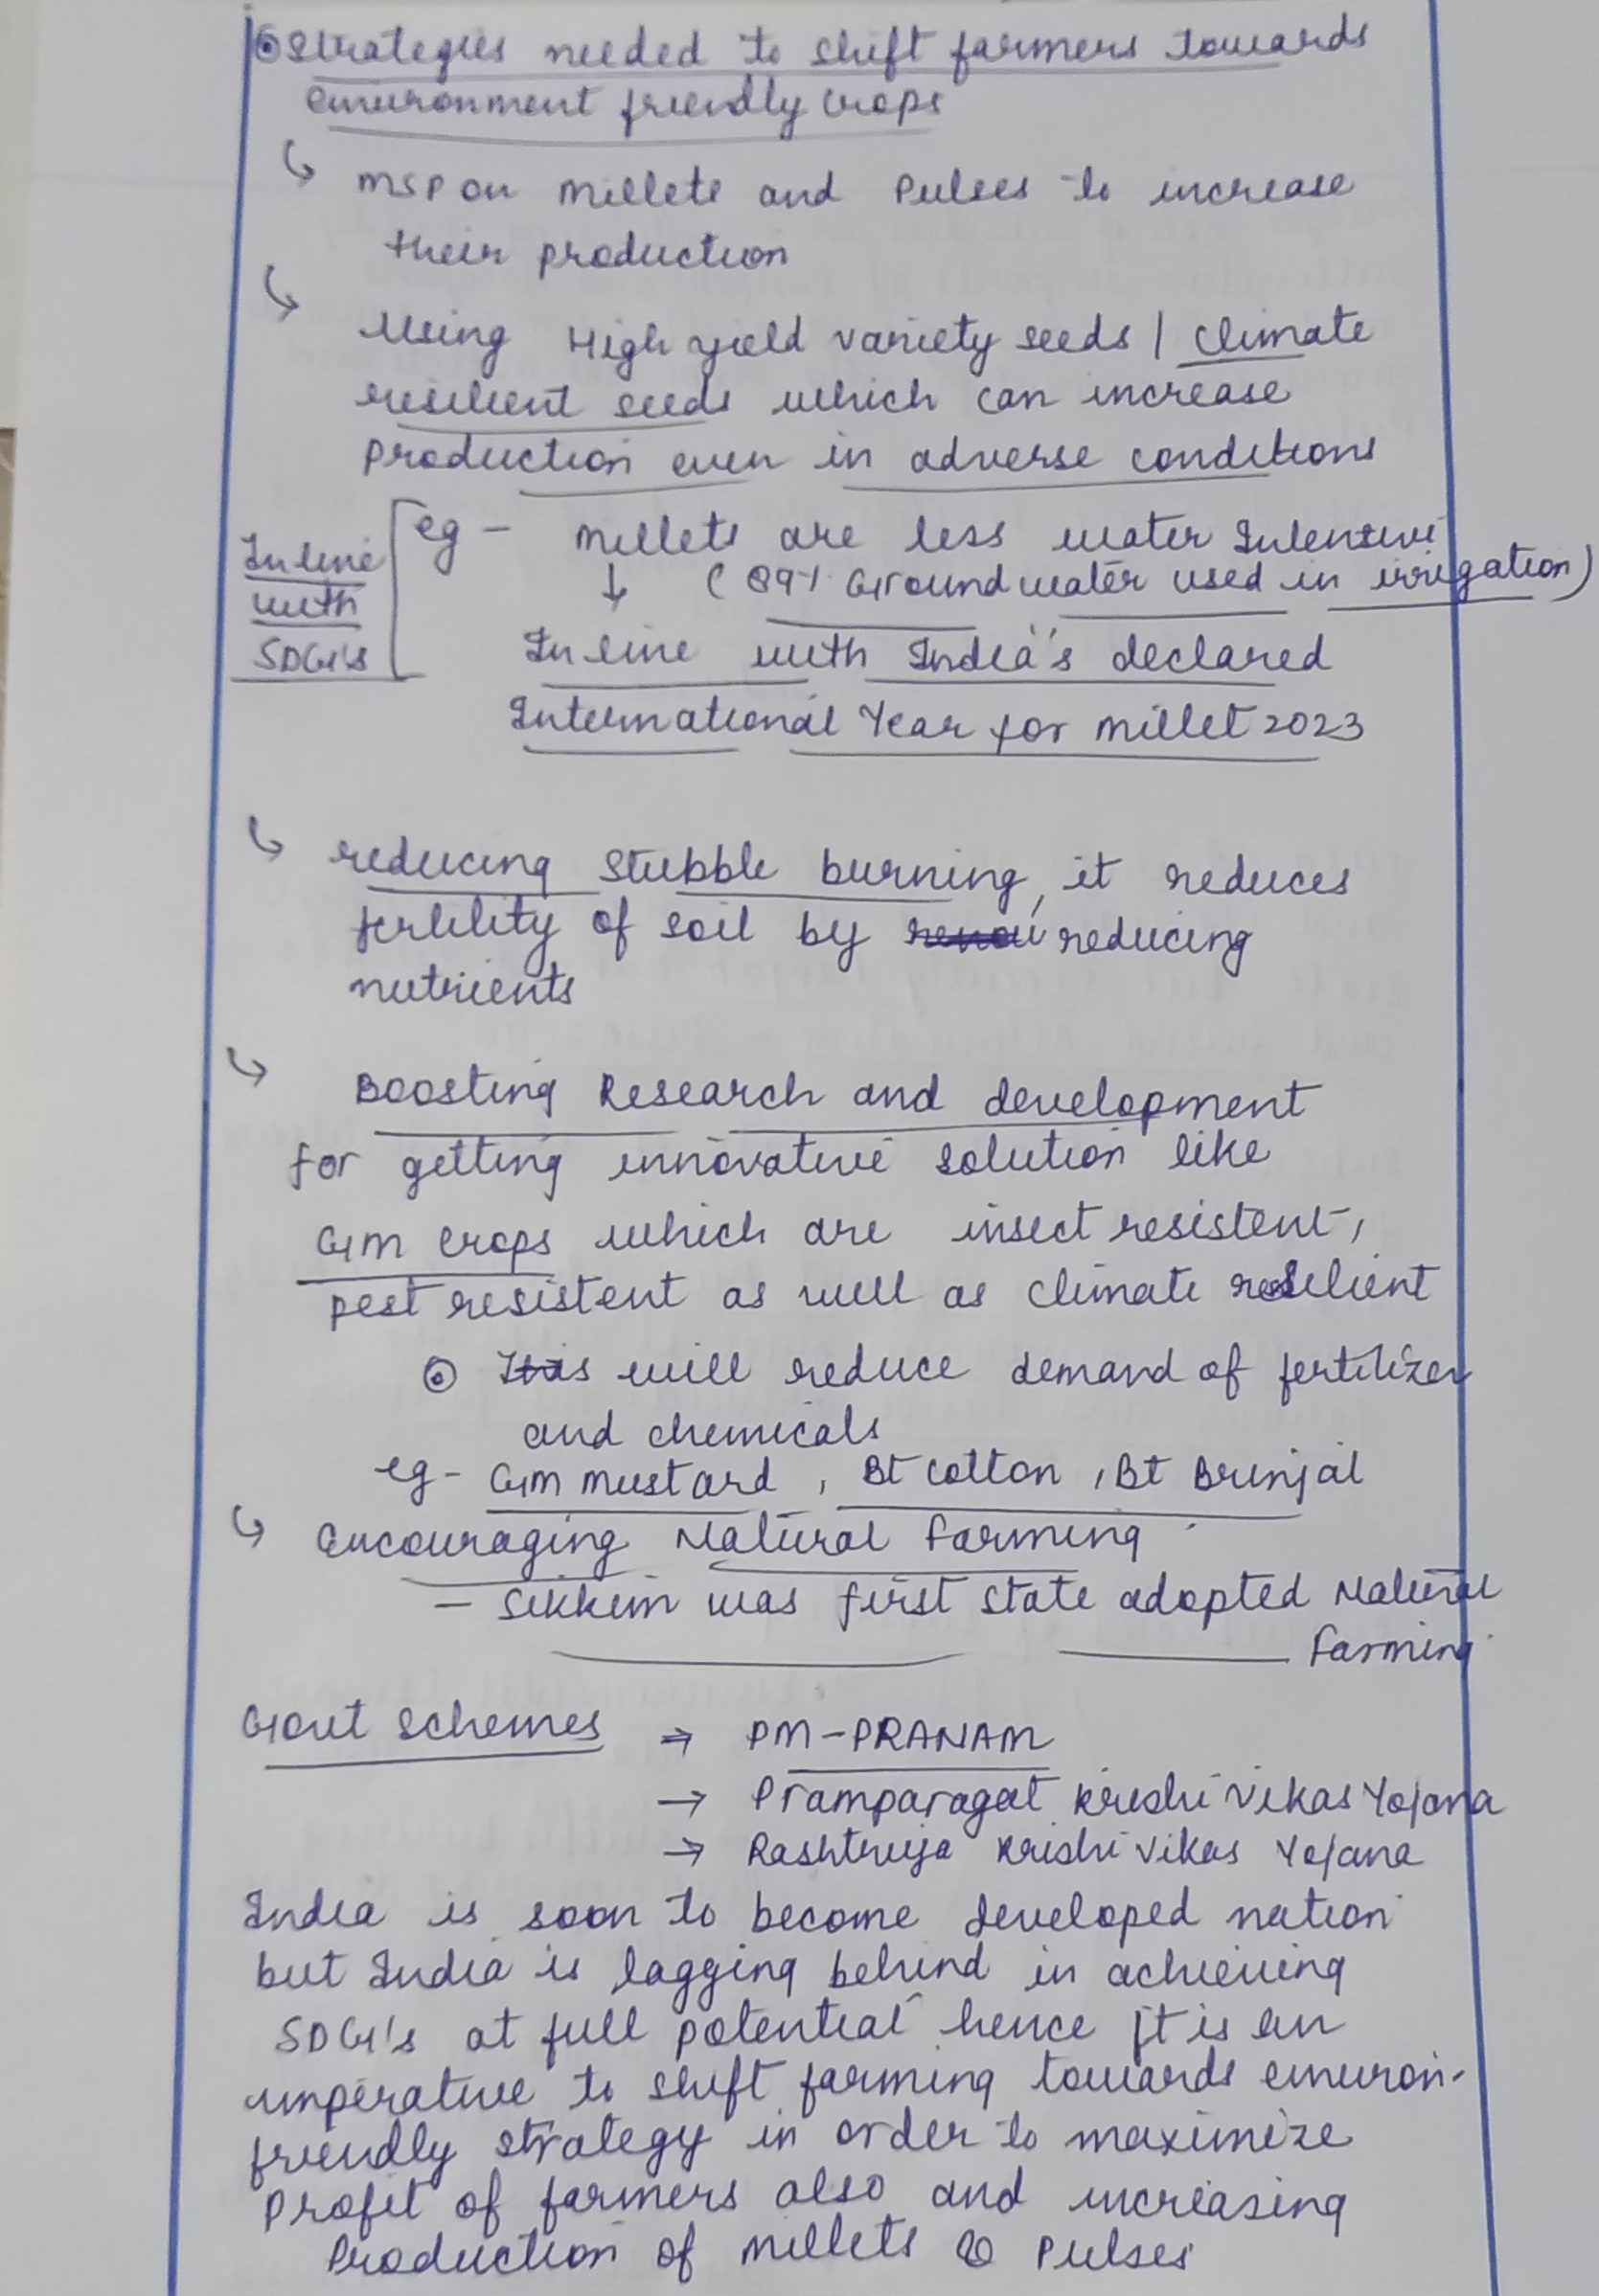 Strategies needed to shift farmers towards
environment friendly crops
↳ MSP on Millets and Pulses to increase
their production
↳ Using High yield variety seeds / climate
resilient seeds which can increase
production even in adverse conditions
eg - Millets are less water Intensive
↓ (89% Groundwater used in irrigation)
Inline
with
SDG's
Inline with India's declared
International Year for millet 2023
↳ reducing stubble burning, it reduces
fertility of soil by reducing
nutrients
↳ Boosting Research and development
for getting innovative solution like
GM crops which are insect resistent,
pest resistent as well as climate resilient
⊙ This will reduce demand of fertilizer
and chemicals
eg - GM mustard, Bt cotton, Bt Brinjal
↳ Encouraging Natural Farming
- Sikkim was first state adopted Natural
Farming
Govt Schemes ⇒ PM-PRANAM
→ Pramparagat Krishi Vikas Yojana
→ Rashtriya Krishi Vikas Yojana
India is soon to become developed nation
but India is lagging behind in achieving
SDG's at full potential hence it is an
imperative to shift farming towards environ-
friendly strategy in order to maximize
Profit of farmers also and increasing
Production of millets & Pulses